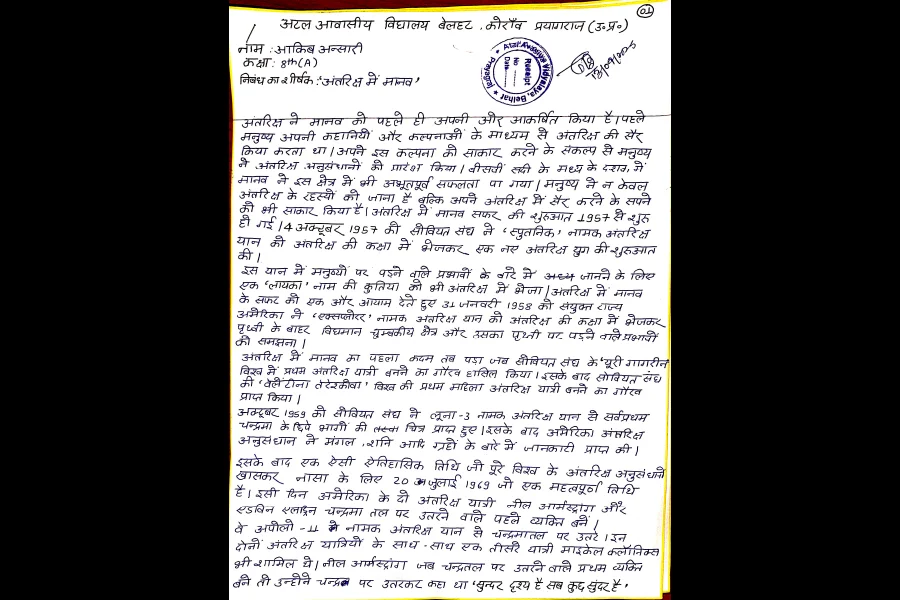 01
अटल आवासीय विद्यालय बेलहट, कोराँव प्रयागराज (उ०प्र०)
नाम : आकिब अन्सारी
कक्षा : 8th (A)
निबंध का शीर्षक : 'अंतरिक्ष में मानव'
Atal Awasiya Vidyalaya, Belhat
Prayagraj
Receipt
No
Date
अंतरिक्ष ने मानव को पहले ही अपनी ओर आकर्षित किया है। पहले
मनुष्य अपनी कहानियों और कल्पनाओं के माध्यम से अंतरिक्ष की सैर
किया करता था। अपने इस कल्पना को साकार करने के संकल्प से मनुष्य
ने अंतरिक्ष अनुसंधानों को प्रारंभ किया। बीसवीं सदी के मध्य के दशक में
मानव ने इस क्षेत्र में भी अभूतपूर्व सफलता पा गया। मनुष्य ने न केवल
अंतरिक्ष के रहस्यों को जाना है बल्कि अपने अंतरिक्ष में सैर करने के सपने
को भी साकार किया है। अंतरिक्ष में मानव सफर की शुरुआत 1957 से शुरु
हो गई। 4 अक्टूबर 1957 को सोवियत संघ ने 'स्पुतनिक' नामक अंतरिक्ष
यान को अंतरिक्ष की कक्षा में भेजकर एक नए अंतरिक्ष युग की शुरुआत
की।
इस यान में मनुष्यों पर पड़ने वाले प्रभावों के बारे में जानने के लिए
एक 'लायका' नाम की कुतिया को भी अंतरिक्ष में भेजा। अंतरिक्ष में मानव
के सफर को एक और आयाम देते हुए 31 जनवरी 1958 को संयुक्त राज्य
अमेरिका ने 'एक्सप्लोरर' नामक अंतरिक्ष यान को अंतरिक्ष की कक्षा में भेजकर
पृथ्वी के बाहर विद्यमान चुम्बकीय क्षेत्र और उसका पृथ्वी पर पड़ने वाले प्रभावों
को समझना।
अंतरिक्ष में मानव का पहला कदम तब पड़ा जब सोवियत संघ के 'यूरी गागरीन
विश्व में प्रथम अंतरिक्ष यात्री बनने का गौरव हासिल किया। इसके बाद सोवियत संघ
की 'वेलेंटीना तेरेस्कोवा' विश्व की प्रथम महिला अंतरिक्ष यात्री बनने का गौरव
प्राप्त किया।
अक्टूबर 1959 को सोवियत संघ ने लूना-3 नामक अंतरिक्ष यान से सर्वप्रथम
चन्द्रमा के छिपे भागों की चित्र प्राप्त हुए। इसके बाद अमेरिका अंतरिक्ष
अनुसंधान ने मंगल, शनि आदि ग्रहों के बारे में जानकारी प्राप्त की।
इसके बाद एक ऐसी ऐतिहासिक तिथि जो पूरे विश्व के अंतरिक्ष अनुसंधानों
खासकर नासा के लिए 20 जुलाई 1969 जो एक महत्वपूर्ण तिथि
है। इसी दिन अमेरिका के दो अंतरिक्ष यात्री नील आर्मस्ट्रांग और
एडविन एल्ड्रिन चन्द्रमा तल पर उतरने वाले पहले व्यक्ति बने।
वे अपोलो-11 नामक अंतरिक्ष यान से चन्द्रमातल पर उतरे। इन
दोनों अंतरिक्ष यात्रियों के साथ-साथ एक तीसरे यात्री माइकेल कॉलिन्स
भी शामिल थे। नील आर्मस्ट्रांग जब चन्द्रतल पर उतरने वाले प्रथम व्यक्ति
बने तो उन्होंने चन्द्रमा पर उतरकर कहा था 'सुन्दर दृश्य है सब कुछ सुंदर है'